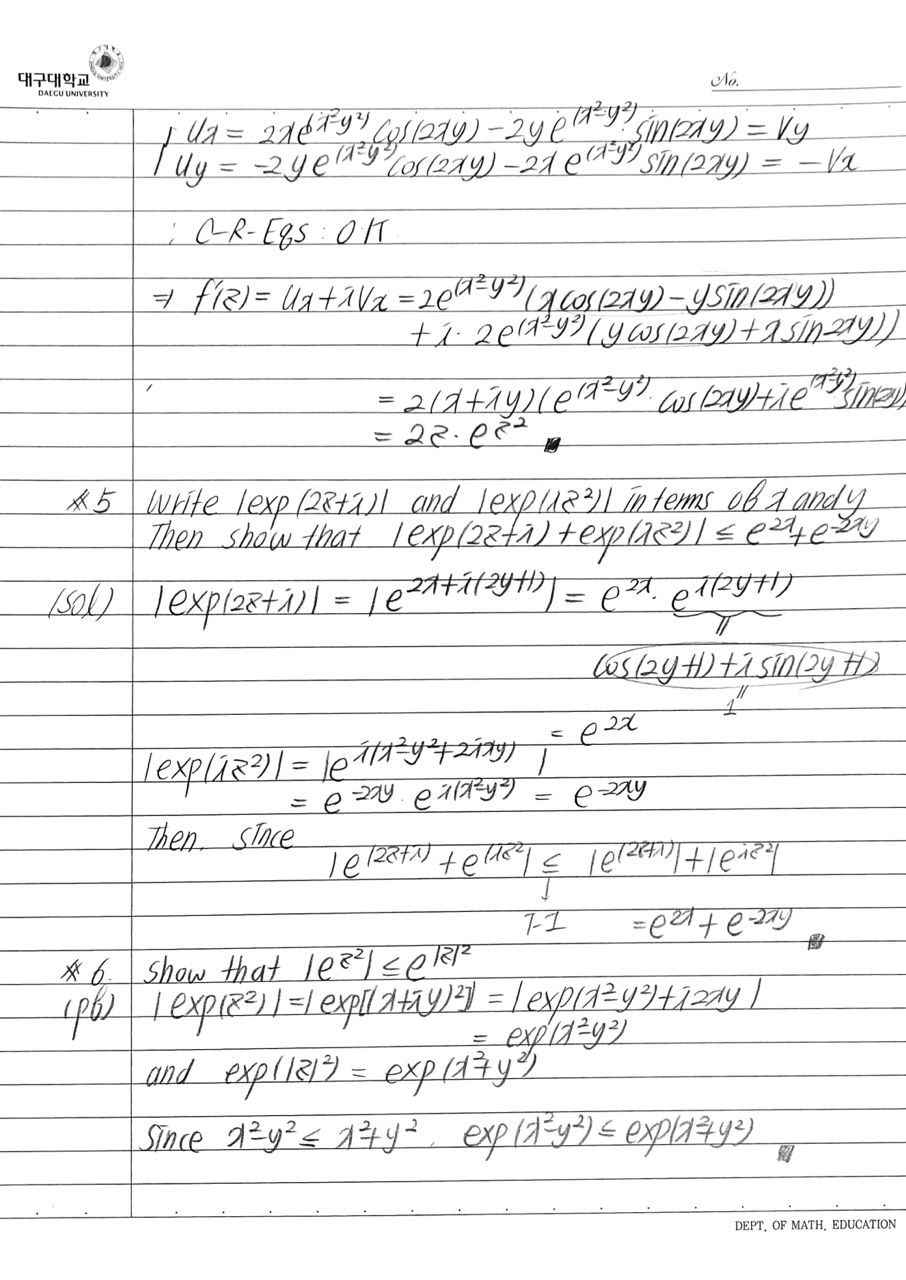 대구대학교
DAEGU UNIVERSITY
No.
Ux = 2xe^(x²-y²) cos(2xy) - 2ye^(x²-y²) sin(2xy) = Vy
Uy = -2ye^(x²-y²) cos(2xy) - 2xe^(x²-y²) sin(2xy) = -Vx
: C-R-Eqs : O.K
⇒ f'(z) = Ux + iVx = 2e^(x²-y²) (x cos(2xy) - y sin(2xy))
+ i · 2e^(x²-y²) (y cos(2xy) + x sin 2xy))
= 2(x+iy)(e^(x²-y²) · cos(2xy) + ie^(x²-y²) sin(2xy)
= 2z · e^z²
#5 Write |exp(2z+i)| and |exp(iz²)| in terms of x and y
Then show that |exp(2z+i) + exp(iz²)| ≤ e^2x + e^-2xy
(sol) |exp(2z+i)| = |e^2x+i(2y+1)| = e^2x · e^i(2y+1)
=
cos(2y+1) + i sin(2y+1)
=
1
= e^2x
|exp(iz²)| = |e^i(x²-y²+2ixy)|
= e^-2xy · e^i(x²-y²) = e^-2xy
Then, since
|e^(2z+i) + e^(iz²)| ≤ |e^(2z+i)| + |e^iz²|
↓
T-I = e^2x + e^-2xy
#6. Show that |e^z²| ≤ e^|z|²
(pf) |exp(z²)| = |exp[(x+iy)²]| = |exp(x²-y²) + i2xy|
= exp(x²-y²)
and exp(|z|²) = exp(x²+y²)
Since x²-y² ≤ x²+y², exp(x²-y²) ≤ exp(x²+y²)
DEPT. OF MATH. EDUCATION